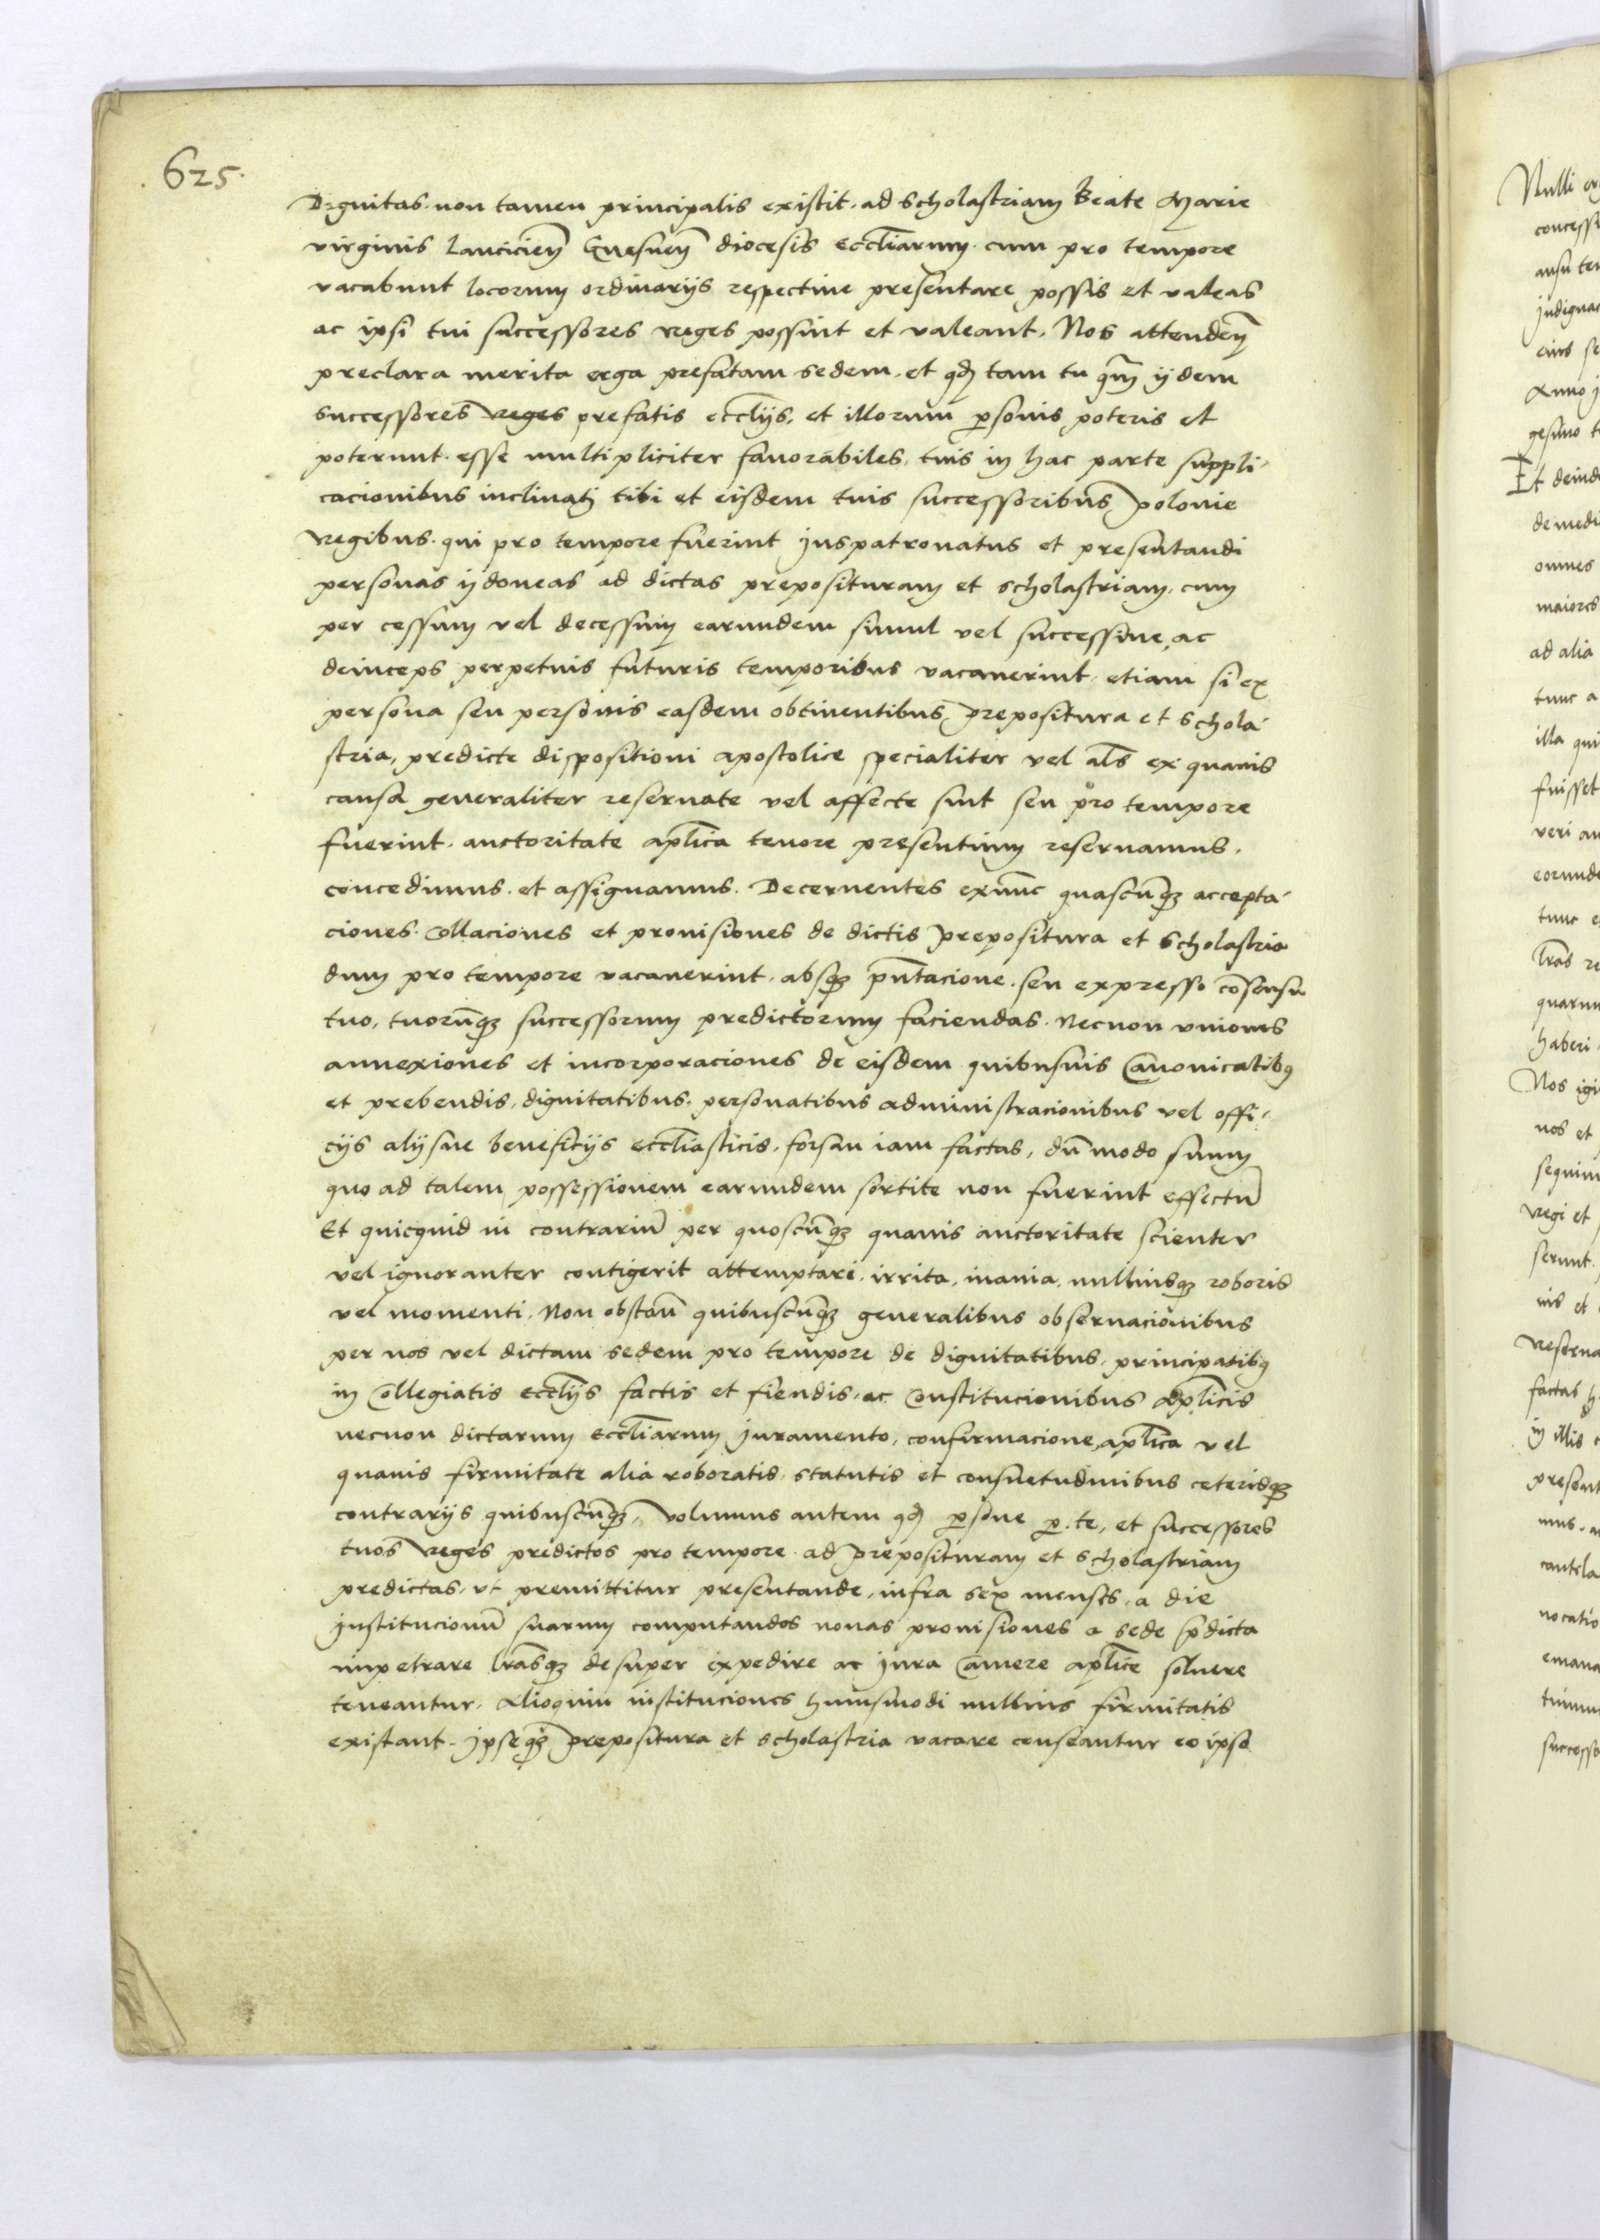 625.
Dignitas. non tamen principalis existit. ad Scholastriam Beate Marie
virginis Lancicień Gnesneń diocesis Eccliarum. cum pro tempore
vacabunt locorum ordinarijs respectiue presentare possis et valeas
ac ipsi tui successores reges possint et valeant. Nos attendeń
preclara merita erga prefatam sedem. et qđ tam tu qm̄ ijdem
successores reges prefatis eccliȳs. et illorum p̱sonis poteris et
poterunt. esse multipliciter fauorabiles. tuis in hac parte suppli-
cacionibus inclinati tibi et eisdem tuis successoribus polonie
regibus. qui pro tempore fuerint juspatronatus et presentandi
personas ijdoneas ad dictas preposituram et scholastriam. cum
per cessum vel decessum earundem simul vel successiue, ac
deinceps perpetuis futuris temporibus vacauerint. etiam si ex
persona seu personis easdem obtinentibus, prepositura et schola-
stria, predicte dispositioni apostolice specialiter vel al̄s ex quauis
causa generaliter reseruate vel affecte sint seu pro tempore
fuerint. auctoritate ap̄lica tenore presentium reseruamus.
concedimus. et assignamus. Decernentes exnūc quascūqʒ accepta-
ciones. collaciones et prouisiones de dictis prepositura et Scholastria
dum pro tempore vacauerint. absqʒ pn̄tacione. seu expresso cōsensu
tuo, tuorūqʒ successorum predictorum faciendas. Necnon vniones
annexiones et incorporaciones de eisdem quibusuis Canonicatibus
et prebendis. dignitatibus. personatibus administracionibus vel offi-
cijs alijsue beneficijs eccliasticis. forsan iam factas, dū modo suum
quo ad talem possessionem earundem sortite non fuerint effectū
Et quicquid in contrariū per quoscūqʒ quauis auctoritate scienter
vel ignoranter contigerit attemptari. irrita. inania. nulliusqʒ roboris
vel momenti. Non obstań quibuscūqʒ generalibus obseruacionibus
per nos vel dictam sedem pro tempore de dignitatibus. principatibus
in Collegiatis eccliȳs factis et fiendis. ac Constitucionibus ap̄licis
necnon dictarum eccliarum juramento. confirmacione, ap̄lica vel
quauis firmitate alia roboratis. statutis et consuetudinibus ceterisqʒ
contrarijs quibuscūqʒ. Volumus autem qđ p̱sone p̱. te, et successores
tuos reges predictos pro tempore. ad preposituram et scholastriam
predictas. vt premittitur presentande. infra sex menses. a die
institucionū suarum computandos nouas prouisiones a sede p̄dicta
impetrare lr̄asqʒ desuper expedire ac jura Camere ap̄lice soluere
teneantur. alioquin instituciones huiusmodi nullius firmitatis
existant. ipseqʒ prepositura et scholastria vacare censeantur eo ipso
Nulli er
concessi
ausu tem
indignac
eius se
Anno j
gesimo t
Et deinde
de medi
omnes
maiores
ad alia
tunc a
illa qui
fuisset
veri au
eorunde
tunc e
lr̄as re
quarum
haberi
Nos igi
nos et
sequim
regi et
serunt.
nis et
reserua
factas h
in illis
present
mus. a
cautela
uocatio
emana
tuimu
successo